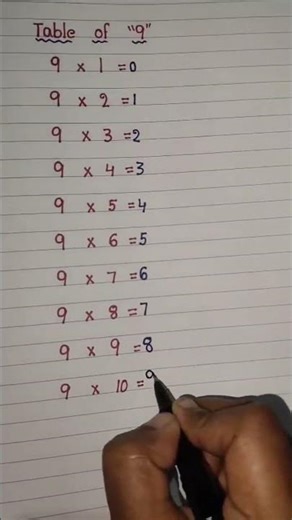 Table of "9"
9 x 1 = 0
9 x 2 = 1
9 x 3 = 2
9 x 4 = 3
9 x 5 = 4
9 x 6 = 5
9 x 7 = 6
9 x 8 = 7
9 x 9 = 8
9 x 10 = 9